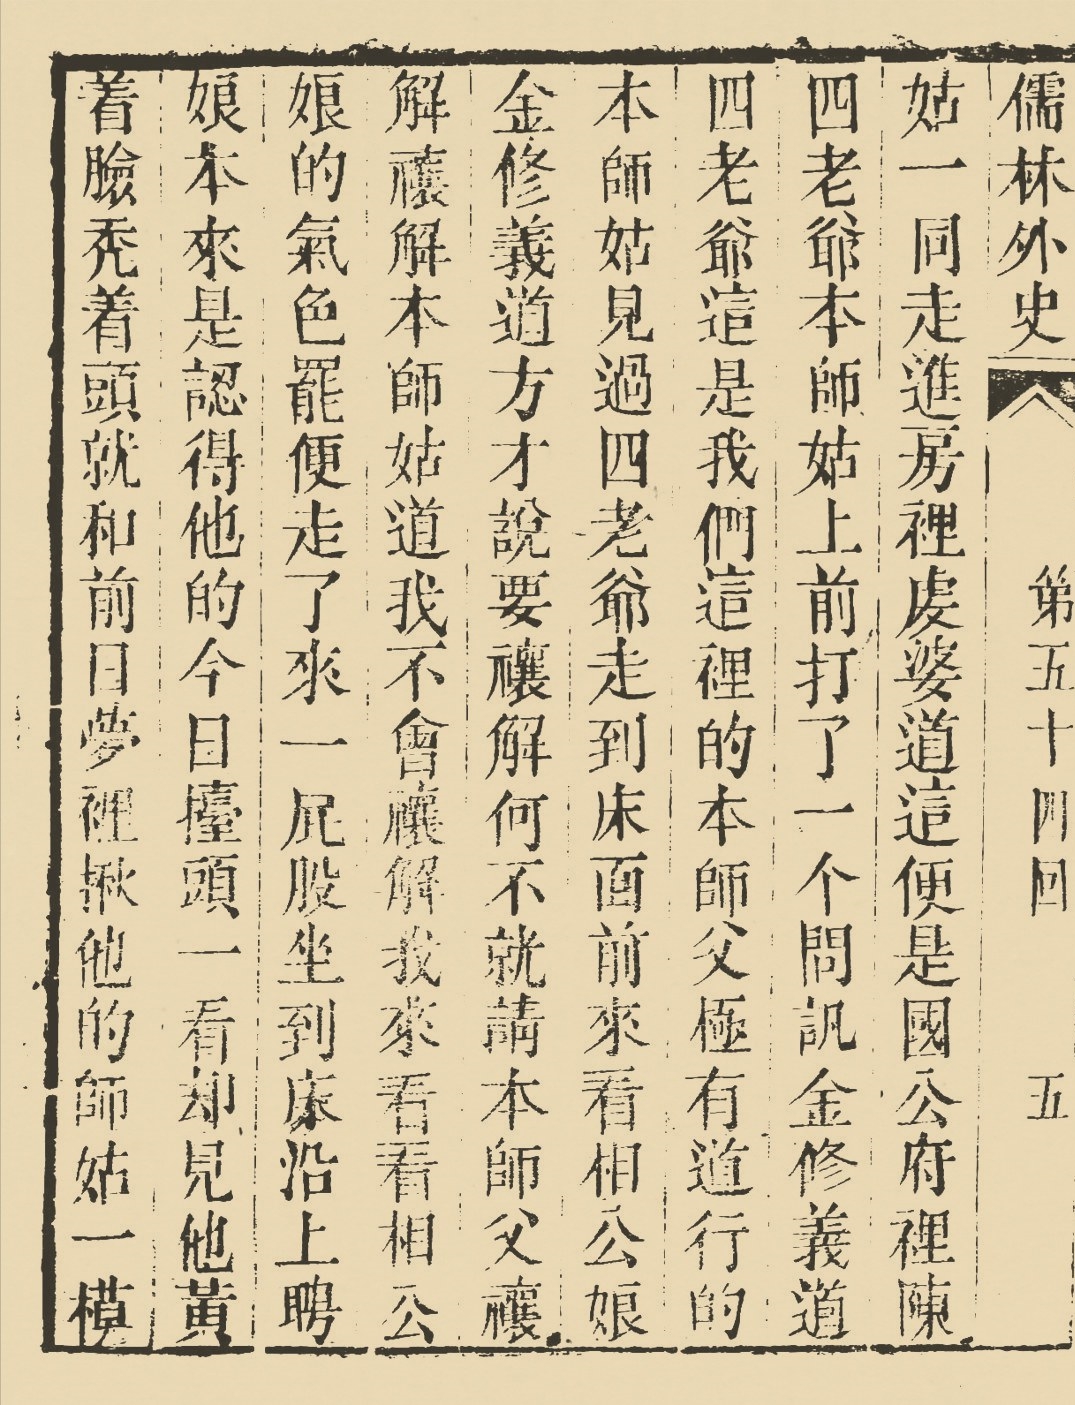 儒林外史 第五十四回 五
姑一同走進房裡虔婆道這便是國公府裡陳
四老爺本師姑上前打了一个問訊金修義道
四老爺這是我們這裡的本師父極有道行的
本師姑見過四老爺走到床面前來看相公娘
金修義道方才說要禳解何不就請本師父禳
解禳解本師姑道我不會禳解我來看看相公
娘的氣色罷便走了來一屁股坐到床沿上聘
娘本來是認得他的今日擡頭一看却見他黃
着臉禿着頭就和前日夢裡揪他的師姑一模